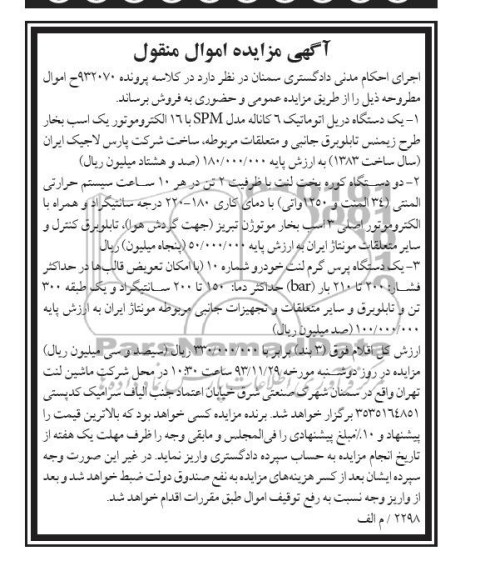 آگهی مزایده اموال منقول
اجرای احکام مدنی دادگستری سمنان در نظر دارد در کلاسه پرونده ۹۳۲۰۷۰ح اموال
مطروحه ذیل را از طریق مزایده عمومی و حضوری به فروش برساند.
۱- یک دستگاه دریل اتوماتیک ۶ کاناله مدل SPM با ۱۶ الکتروموتور یک اسب بخار
طرح زیمنس تابلوبرق جانبی و متعلقات مربوطه، ساخت شرکت پارس لاجیک ایران
(سال ساخت ۱۳۸۳) به ارزش پایه ۱۸۰/۰۰۰/۰۰۰ (صد و هشتاد میلیون ریال)
۲- دو دستگاه کوره پخت لنت با ظرفیت ۲ تن در هر ۱۰ ساعت سیستم حرارتی
المنتی (۳۴ المنت و ۱۲۵۰واتی) با دمای کاری ۱۸۰-۲۲۰ درجه سانتیگراد و همراه با
الکتروموتور اصلی ۳ اسب بخار موتوژن تبریز (جهت گردش هوا)، تابلوبرق کنترل و
سایر متعلقات مونتاژ ایران به ارزش پایه ۵۰/۰۰۰/۰۰۰ (پنجاه میلیون) ریال
۳- یک دستگاه پرس گرم لنت خودرو شماره ۱۰ (با امکان تعویض قالب‌ها در حداکثر
فشار: ۲۰۰ تا ۲۱۰ بار (bar) حداکثر دما: ۱۵۰ تا ۲۰۰ سانتیگراد و یک طبقه ۳۰۰
تن و تابلوبرق و سایر متعلقات و تجهیزات جانبی مربوطه مونتاژ ایران به ارزش پایه
۱۰۰/۰۰۰/۰۰۰ (صد میلیون ریال)
ارزش کل اقلام فوق (۳ بند) برابر با ۳۳۰/۰۰۰/۰۰۰ ریال (سیصد و سی میلیون ریال)
مزایده در روز دوشنبه مورخه ۹۳/۱۱/۲۹ ساعت ۱۰:۳۰ در محل شرکت ماشین لنت
تهران واقع در سمنان شهرک صنعتی شرق خیابان اعتماد جنب الیاف سرامیک کدپستی
۳۵۳۵۱۶۴۸۵۱ برگزار خواهد شد. برنده مزایده کسی خواهد بود که بالاترین قیمت را
پیشنهاد و ۱۰٪ مبلغ پیشنهادی را فی‌المجلس و مابقی وجه را ظرف مهلت یک هفته از
تاریخ انجام مزایده به حساب سپرده دادگستری واریز نماید. در غیر این صورت وجه
سپرده ایشان بعد از کسر هزینه‌های مزایده به نفع صندوق دولت ضبط خواهد شد و بعد
از واریز وجه نسبت به رفع توقیف اموال طبق مقررات اقدام خواهد شد.
۲۲۹۸ / م الف
ParsNamadData